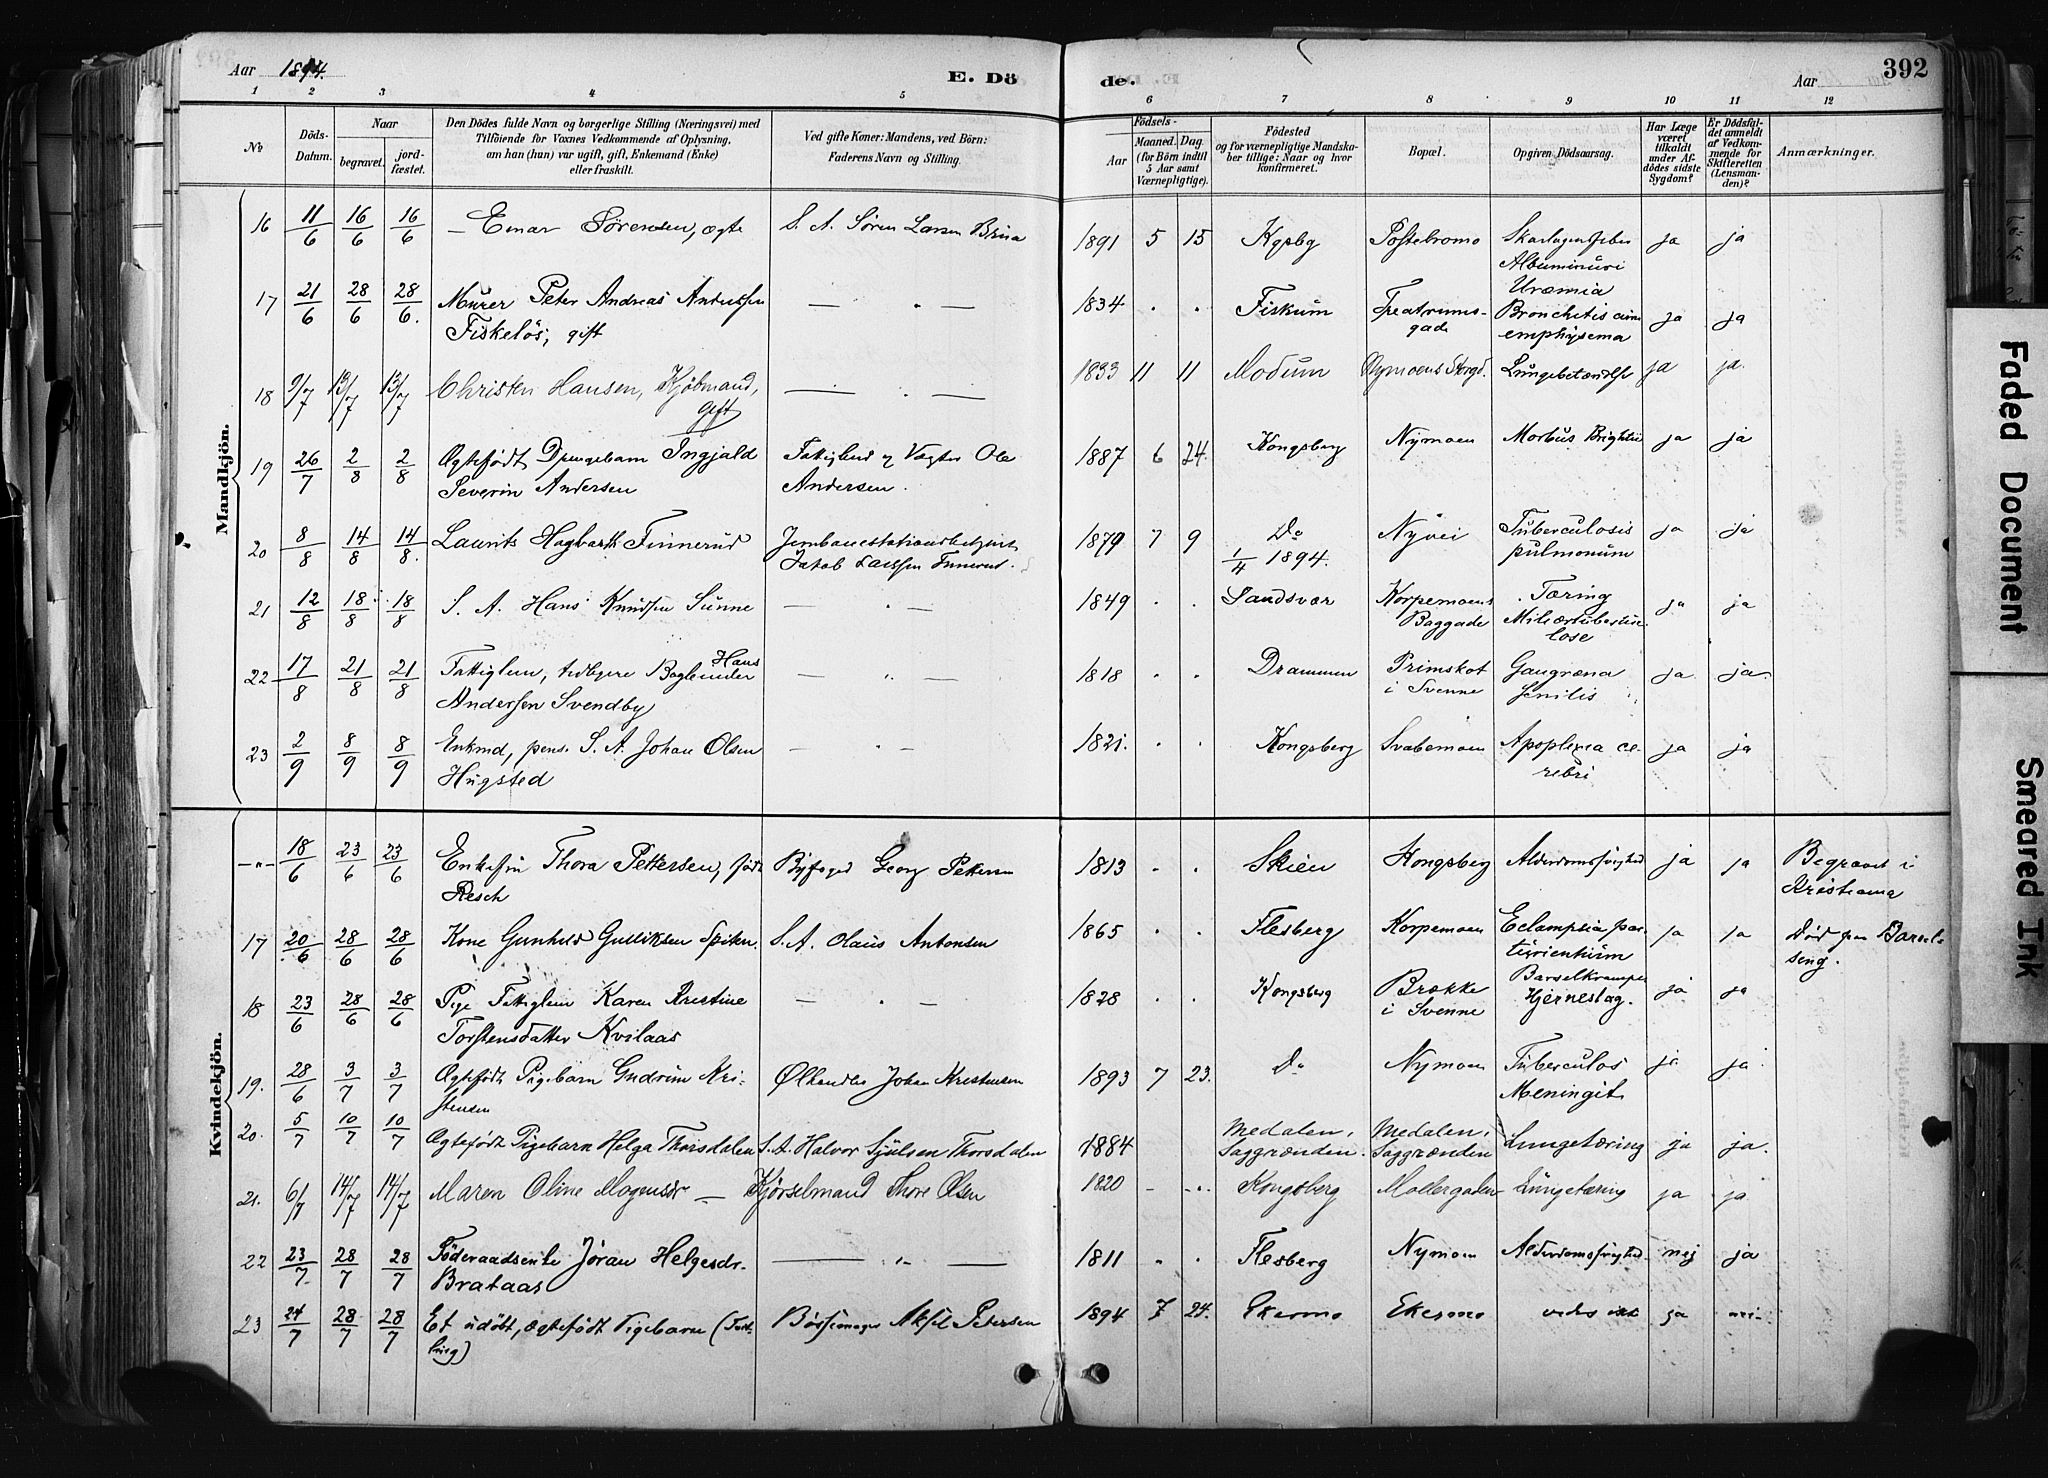 Aar 1894. E. Dö de. Aar 392
1 2 3 4 5 6 7 8 9 10 11 12
No Döds-Datum. Naar begravet. jord-fæstet. Den Dödes fulde Navn og borgerlige Stilling (Næringsvei) med Tilföiende for Voxnes Vedkommende af Oplysning, om han (hun) var ugift, gift, Enkemand (Enke) eller fraskilt. Ved gifte Koner: Mandens, ved Börn: Faderens Navn og Stilling. Födsels- Aar Maaned. Dag. (for Börn indtil 5 Aar samt Værnepligtige). Födested og for værnepligtige Mandskaber tillige: Naar og hvor konfirmeret. Bopæl. Opgiven Dödsaarsag. Har Læge været tilkaldt under Afdödes sidste Sygdom? Er Dödsfaldet anmeldt af Vedkommende for Skifteretten (Lensmanden)? Anmærkninger.
Mandkjön.
16 11/6 16/6 16/6 Einar Sörensen, ægte S. A. Sören Larsen 1891 5 15 Kgsbg ja ja
Albuminuri
Uræmia
17 21/6 28/6 28/6. Murer Peter Andreas Anderssen — " — 1834 . . Fiskum Bronchitis ja ja
Fiskelös, gift gade emphysema
18 9/7 13/7 13/7 Christen Hansen, Kjöbmand, — . — 1833 11 11 Modum ja ja.
gift
19 26/7 2/8 2/8 Ægtefödt Drengebarn Ingjald Fattiglem og Vægter Ole 1887 6 24. Kongsberg Nymoen Morbus Brightii ja ja
Severin Andersen Andersen.
20 8/8 14/8 14/8. Laurits Hagbarth Finnerud 1879 7 9 Do Nyvei Tuberculosis ja ja
Jakob Larssen Finnerud. 1/4 1894. pulmonum
21 12/8 18/8 18/8 S. A. Hans Knudsen Sunne — " — 1849 . . Sandsvær Korpemoens Tæring ja ja
Baggade
22 17/8 21/8 21/8 Fattiglem, tidligere Hans — " — 1818 . . Drammen Primskot Gangræna ja ja.
Andersen Svendby i Svenne senilis
23 2/9 8/9 8/9 Enkmd, pens. S. A. Johan Olsen — " — 1821. . . Kongsberg Svabemoen Apoplexia ce- ja ja
Hugsted rebri
Kvindekjön.
—"— 18/6 23/6 23/6 Enkefru Thora Pettersen, född Byfoged Georg Petersen 1813 . . Skien Kongsberg Alderdomssvaghed ja ja Begravet i
Resch Kristiania
17 20/6 28/6 28/6 Kone Gunhild Gulliksen S. A. Olaus Antonsen 1865 . . Flesberg Korpemoen Eclampsia par- ja ja Död paa Barsel-
turientium seng.
Barselkrampe
18 23/6 28/6 28/6 Pige Fattiglem Karen Kristine — " — 1828 . . Kongsberg Brække Hjerneslag. ja ja
Torstensdatter Kvilaas i Svenne
19. 28/6 3/7 3/7 Ægtefödt Pigebarn Gudrun Kri- Ølhandler Johan Kristensen 1893 7 23. Do Nymoen Tuberculos ja ja
stensen Meningit
20. 5/7 10/7 10/7 Ægtefödt Pigebarn Helga Thorsdalen S. A. Halvor Sjulsen Thorsdalen 1884 Medalen, Saggrænden. Medalen, Saggrænden Lungetæring ja ja.
21. 6/7 14/7 14/7 Maren Oline Mogensdr — Kjörselmand Thore Olsen 1820 — . Kongsberg Möllergaden Lungetæring ja ja
22 23/7. 28/7 28/7 Föderaadsenke Jöran Helgesdr. — " — 1811 . . Flesberg Nymoen Alderdomssvaghed nej ja
Brataas
23 24/7 28/7 28/7 Et udöbt, ægtefödt Pigebarn Bössemager Aksel Petersen 1894 7 24. Ekermo Ekermo vides ikke ja
Faded Document
Smeared Ink